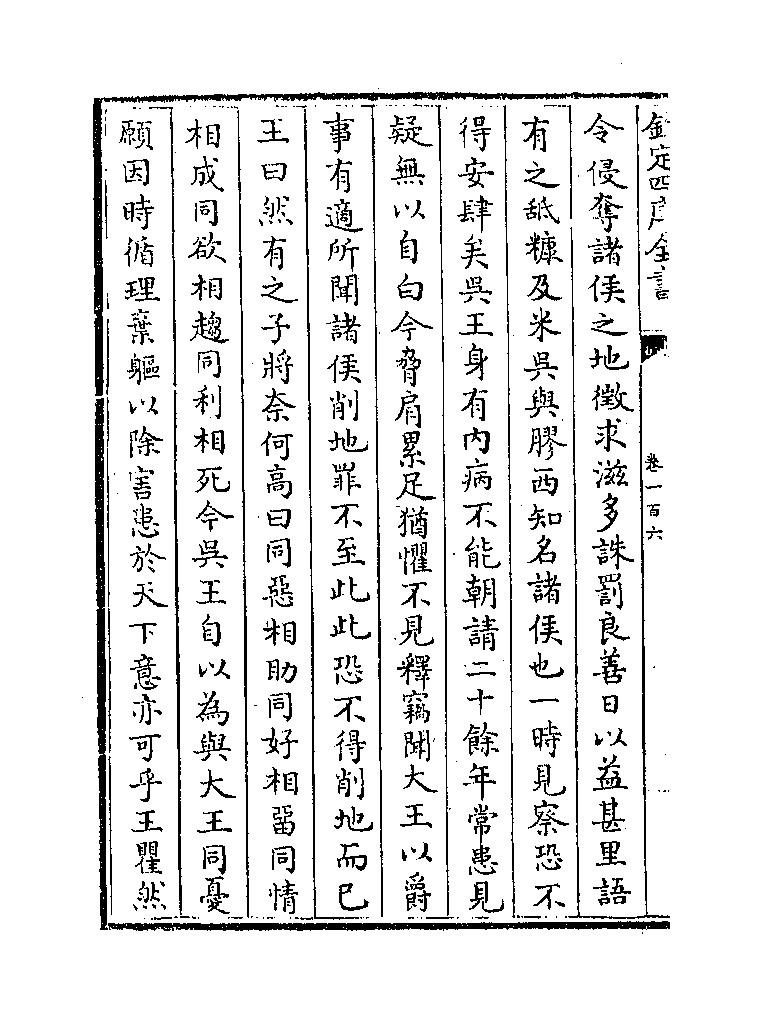 欽定四庫全書
卷一百六
令侵奪諸侯之地徵求滋多誅罰良善日以益甚里語
有之舐糠及米吳與膠西知名諸侯也一時見察恐不
得安肆矣吳王身有内病不能朝請二十餘年常患見
疑無以自白今脅肩累足猶懼不見釋竊聞大王以爵
事有適所聞諸侯削地罪不至此此恐不得削地而已
王曰然有之子將奈何高曰同惡相助同好相畱同情
相成同欲相趨同利相死今吳王自以為與大王同憂
願因時循理棄軀以除害患於天下意亦可乎王瞿然